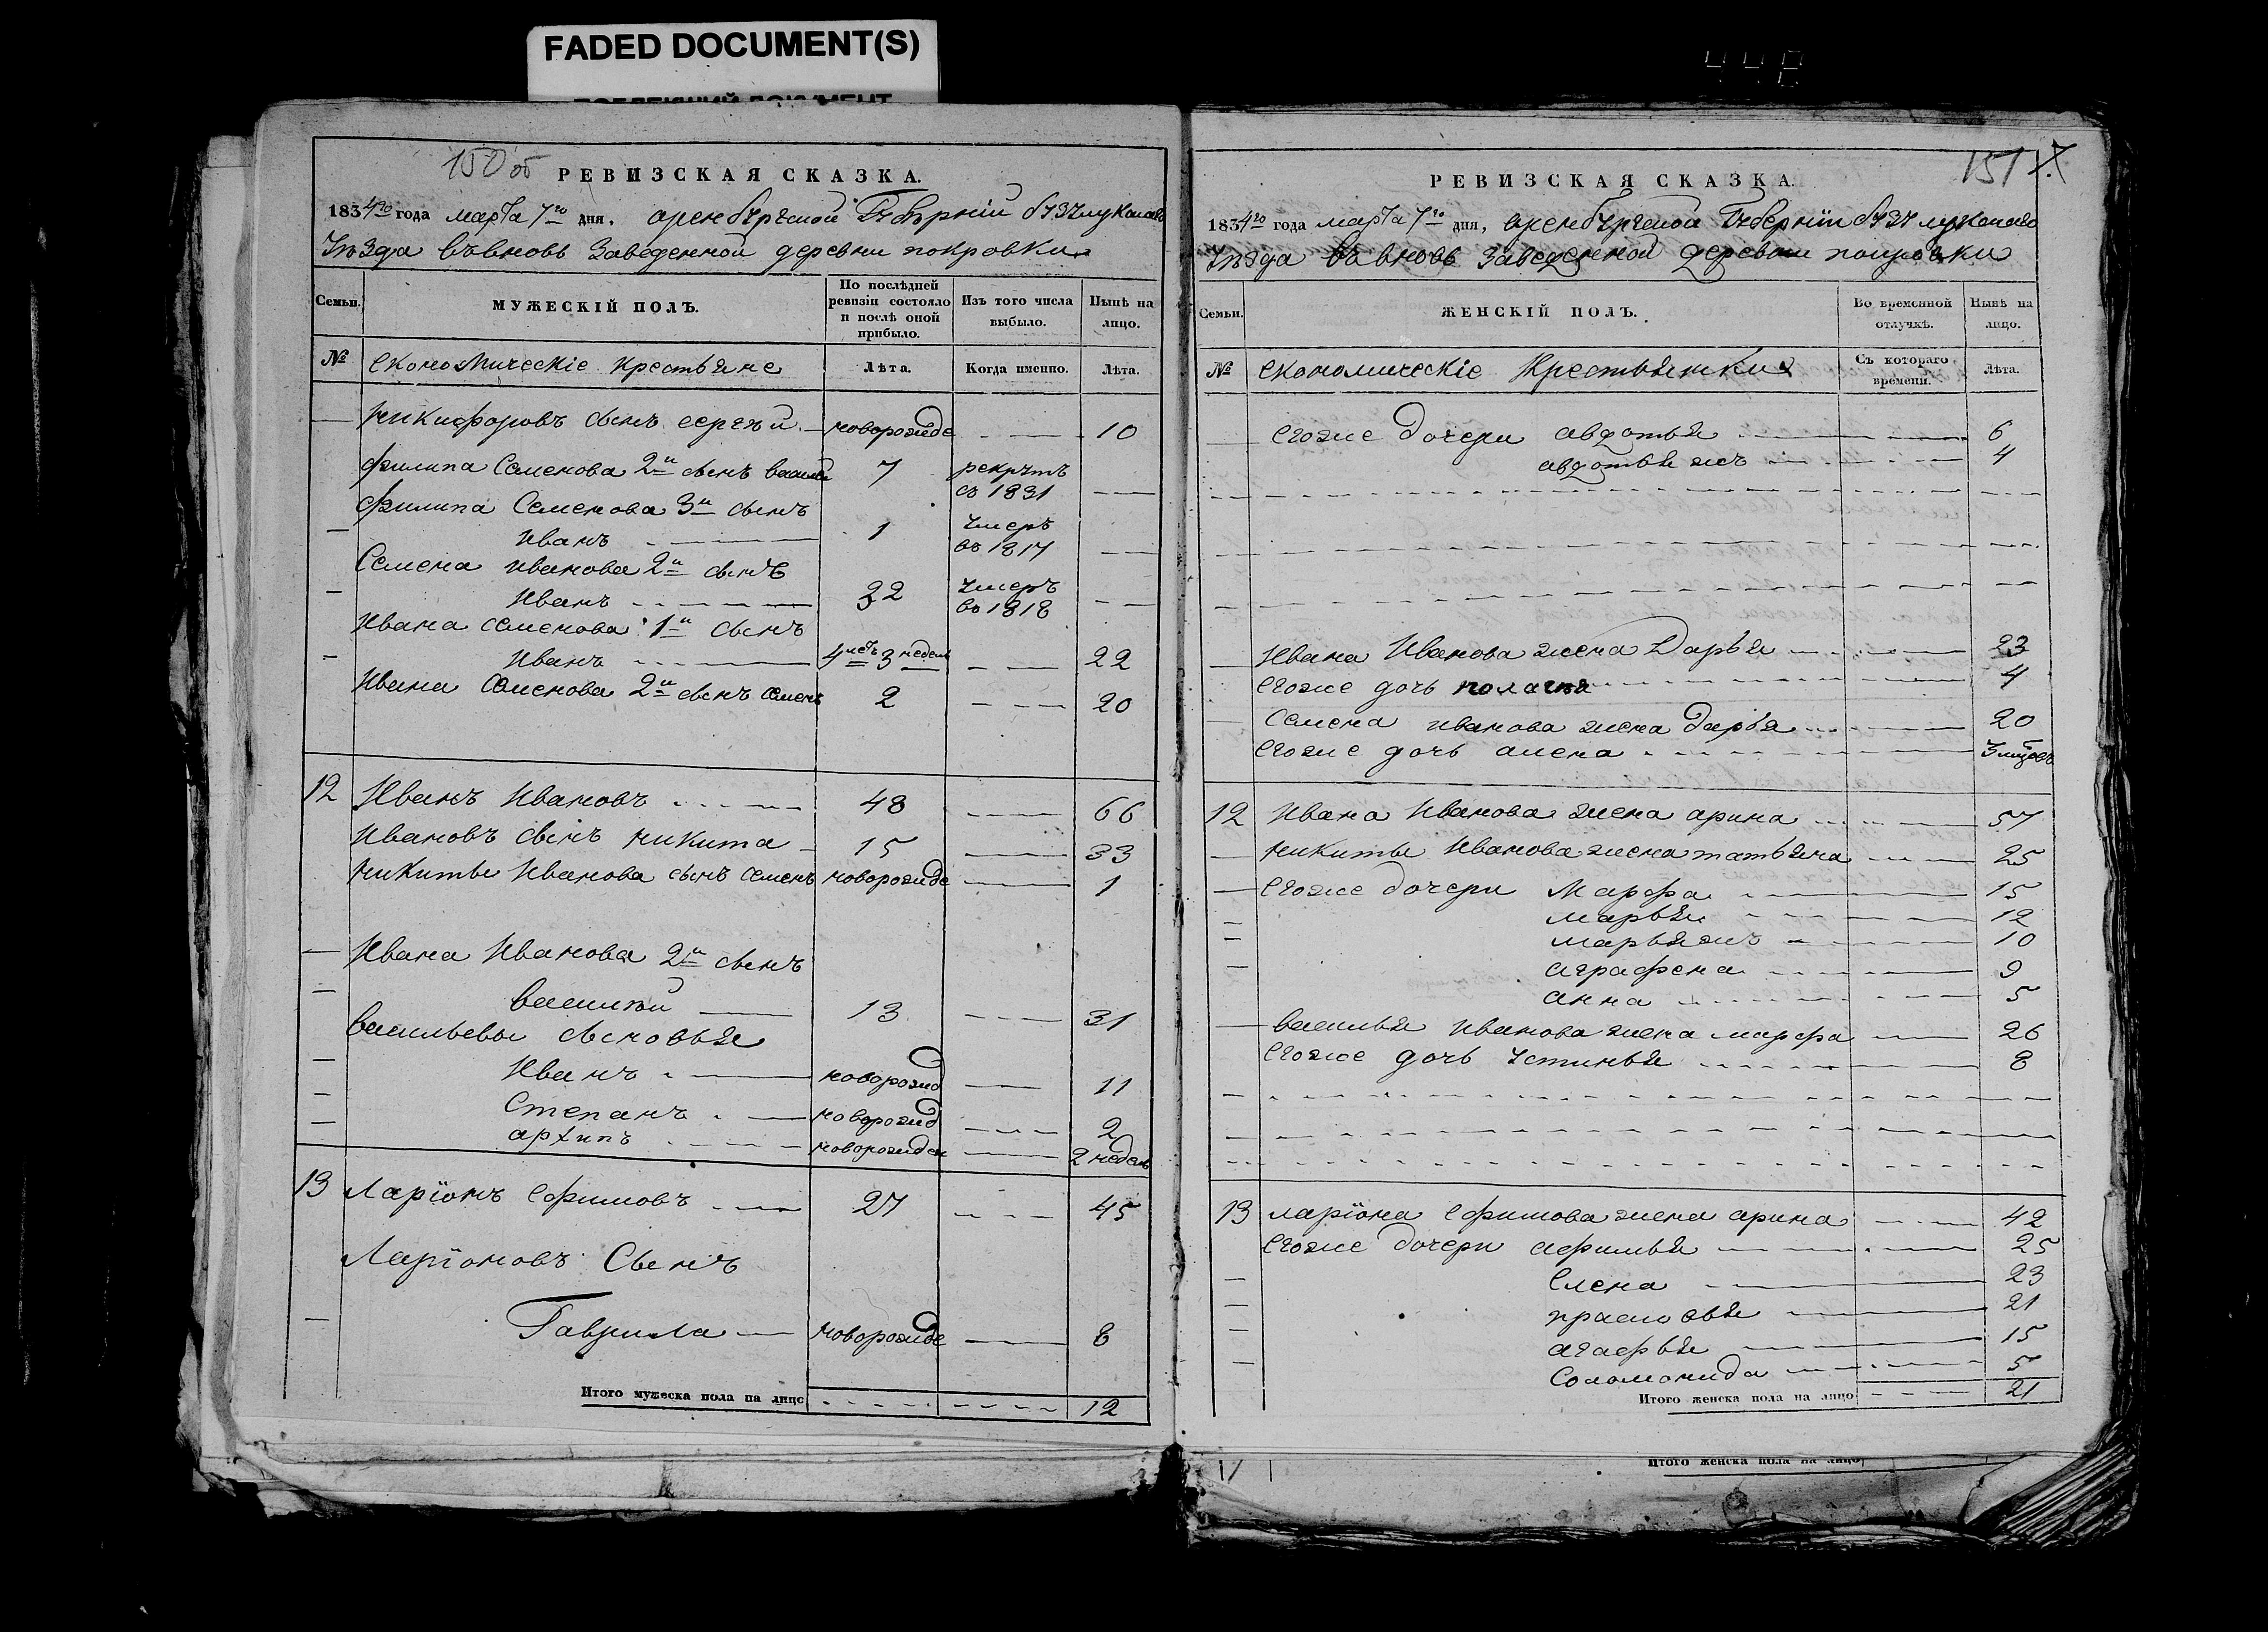 FADED DOCUMENT(S)
150 об
РЕВИЗСКАЯ СКАЗКА.
1834го года марта 7го дня, оренбургской Губернiи бузулукскаго
Уѣзда въвновь заведенной деревни покровки
Семьи.
МУЖЕСКIЙ ПОЛЪ.
По послѣдней ревизiи состояло и послѣ оной прибыло.
Изъ того числа выбыло.
Нынѣ на лицо.
№ економическiе крестьяне Лѣта. Когда именно. Лѣта.
никифоровъ сынъ сергѣй новорожде 10
филипа Семенова 2й сынъ василей 7 рекрутъ
съ 1831
филипа Семенова 3й сынъ
Иванъ 1 умеръ
въ 1817
Семена иванова 2й сынъ
Иванъ 22 умеръ
въ 1818
Ивана семенова 1й сынъ
Иванъ 4 3 недель 22
Ивана Семенова 2й сынъ семенъ 2 20
12 Иванъ Ивановъ 48 66
Ивановъ сынъ никита 15 33
никиты Иванова сынъ семенъ новорожде 1
Ивана Иванова 2й сынъ
василiй 13 31
васильевы сыновья
Иванъ новорожд 11
Степанъ новорожд 2
архипъ новорожден 2 недель
13 Ларiонъ Ефимовъ 27 45
Ларiоновъ Сынъ
Гаврила новорожде 8
Итого мужеска пола на лицо 12
151
РЕВИЗСКАЯ СКАЗКА.
1834го года марта 7го дня, оренбургской Губернiи бузулукскаго
Уѣзда въ вновь заведенной деревни покровки
Семьи.
ЖЕНСКIЙ ПОЛЪ.
Во временной отлучкѣ.
Нынѣ на лицо.
№ економическiе Крестьянки Съ котораго времени. Лѣта.
Егоже дочери авдотья 6
авдотья жъ 4
Ивана Иванова жена Дарья 23
Егоже дочь 4
Семена иванова жена дарья 20
Егоже дочь алена
12 Ивана Иванова жена арина 57
никиты Иванова жена татьяна 25
Егоже дочери Марфа 15
марья 12
марья жъ 10
аграфена 9
анна 5
василья Иванова жена марфа 26
Егоже дочь устинья 8
13 ларiона Ефимова жена арина 42
Егоже дочери афимья 25
Елена 23
прасковья 21
агафья 15
Соломонида 5
Итого женска пола на лицо 21
Итого женска пола на лицо